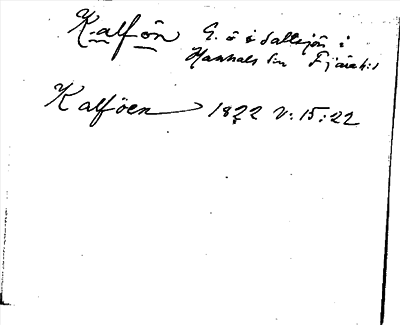 Kalfön G. ö i Saltsjön i
Hanhals sn Fjäre h:d
Kalföen 1822 V: 15: 22